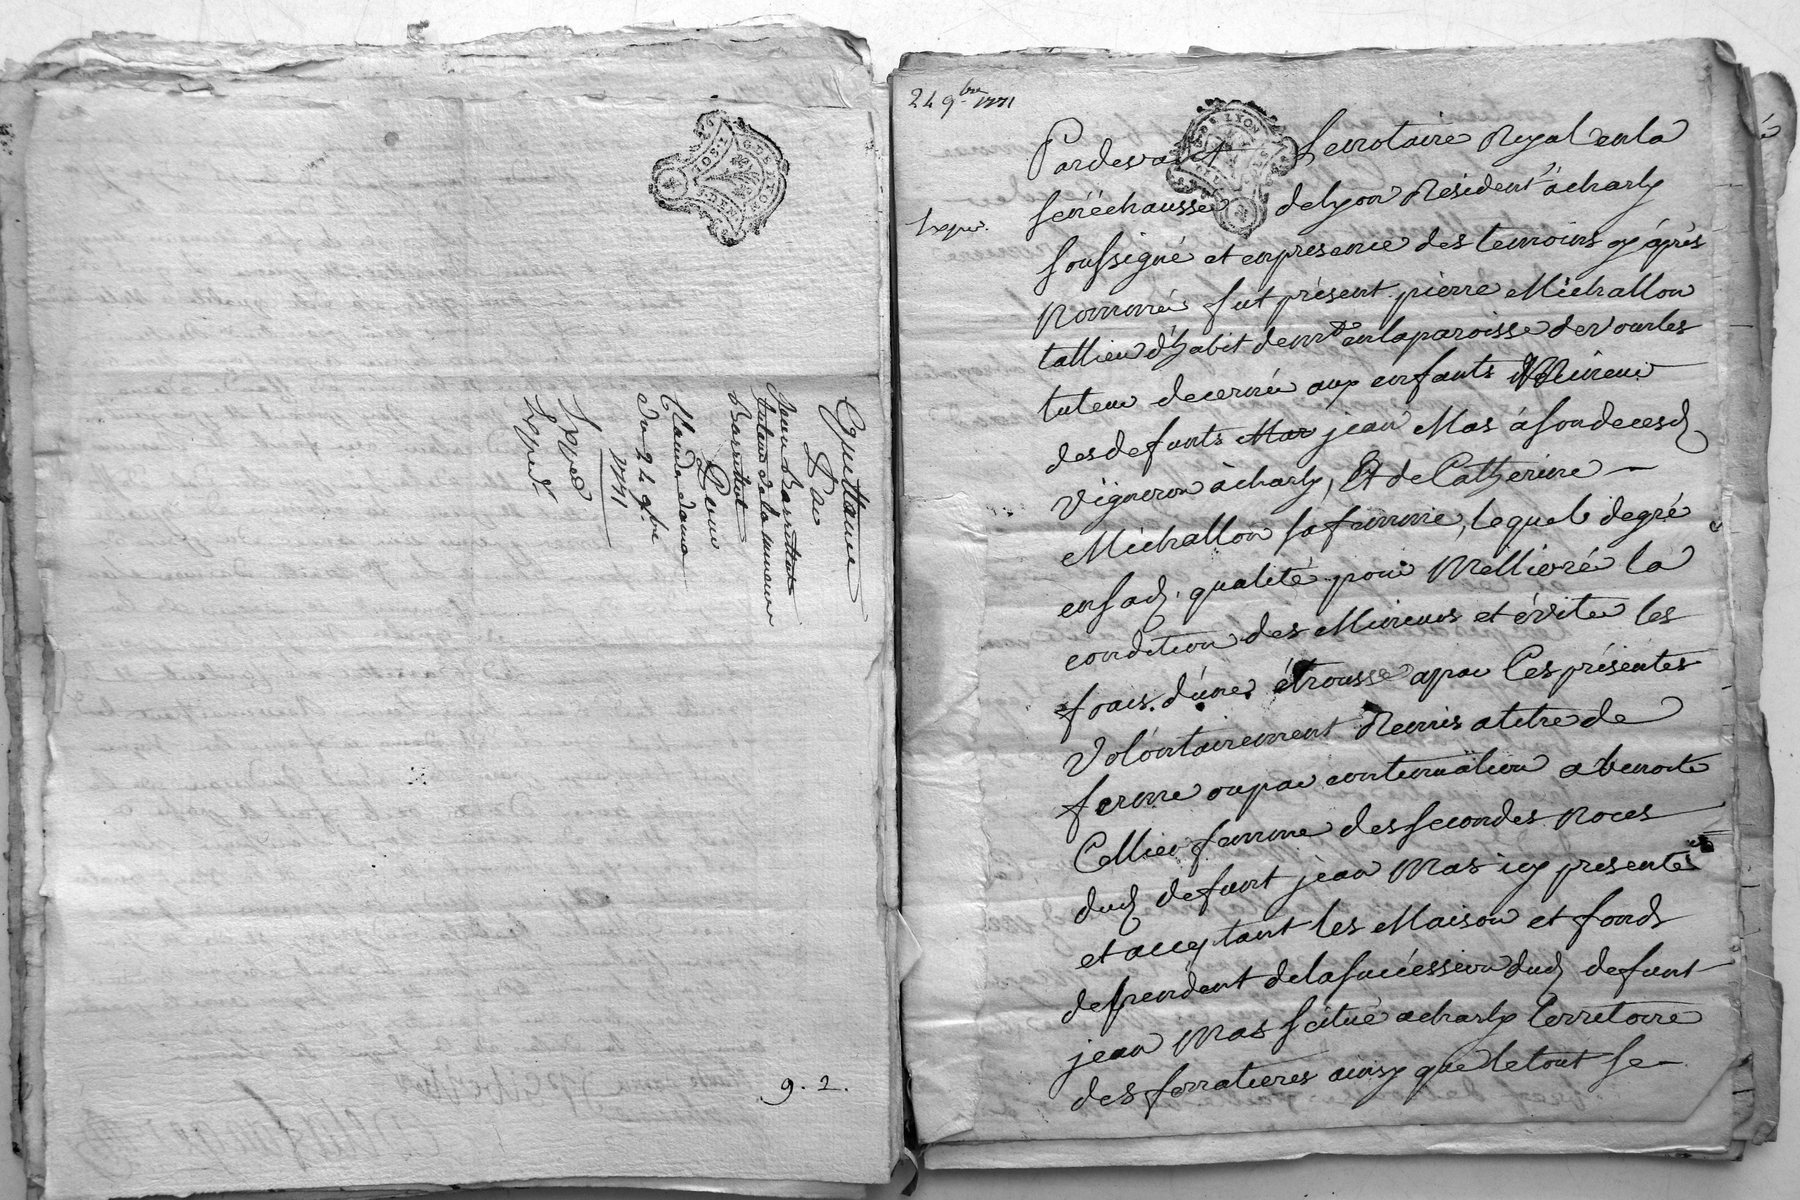 Quittance
Par
Jean Barrittot
tuteur de la mineure
Barrittot
Pour
Claude dama
Du 24 9bre
1771
Expéd
9. 2.
24 9bre 1771
Expéd.
DE LYON
Pardevant Le notaire Royal en la
senéchaussé de lyon Résident à charly
soussigné et en présence des temoins cy áprès
nommés fut présent pierre Michallon
tallieur d'habit demt en la paroisse de vourles
tuteur decerné aux enfants Mineurs
des defunts Mar jean Mas á son deces d
vigneron à charly, Et de Catherine
Michallon sa femme, lequel de gré
en sad. qualité pour Melliorér la
condition des Mineurs et éviter les
frais. d'une étrousse a par Ces présentes
Volontairement Remis a titre de
ferme ou par continuätion a benoite
Cellier femme des secondes noces
dud defunt jean Mas icy presente
et acceptant les Maison et fonds
dependent de la succéssion dud defunt
jean Mas scitué a charly territoire
des ferratieres ainsy que le tout se